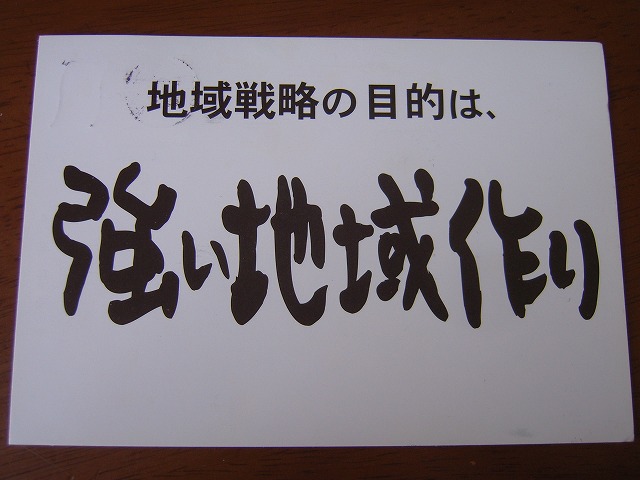 地域戦略の目的は、
強い地域作り